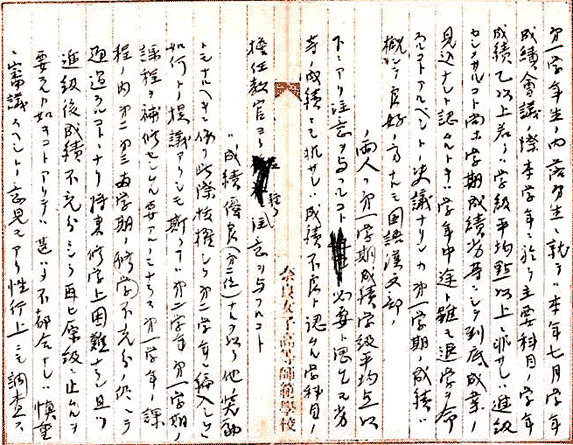 第一学年生ノ内落第生ニ就テハ本年七月学年
成績会議ノ際本学年ニ於テ主要科目ノ学年
成績乙以上若クハ学級平均点以上ニ非サレハ進級
センメサルコト尚ホ学期成績劣等ニシテ到底成業ノ
見込ナシト認ムルトキハ学年中途ト雖モ退学ヲ命
スルコトアルヘシト決議ナリシカ第一学期ノ成績ハ
概シテ良好ノ方ナルモ国語漢文部ノ
両人ハ第一学期成績学級平均点以
下ニアリ注意ヲ与フルコト必要ト思惟ス尤モ
ノ成績ニモ抗ナシ成績不良ト認ムル学科目ノ
担任教官ヨリ注意ヲ与フルコト
ハ成績優良(第二位)ナルヲ以テ他ノ奨励
トモナルヘキニ依リ此際抜擢シテ第二学年ニ編入シテハ
如何トノ提議アリシモ斯クテハ第二学年第一学期ノ
課程ヲ補修センムル要アルノミナラス第一学年ノ課
程ノ内第二第三両学期ノ修学不充分ノ処ニテ
通過スルコトヽナリ将来修学上困難ナルヘク且ツ
進級後成績不充分ニシテ再ヒ原級ニ止ムルヲ
要スル如キコトアリテハ甚タ不都合ナレハ慎重
ニ審議スヘシトノ意見モアリ性行上ニモ調査ス
奈良女子高等師範学校